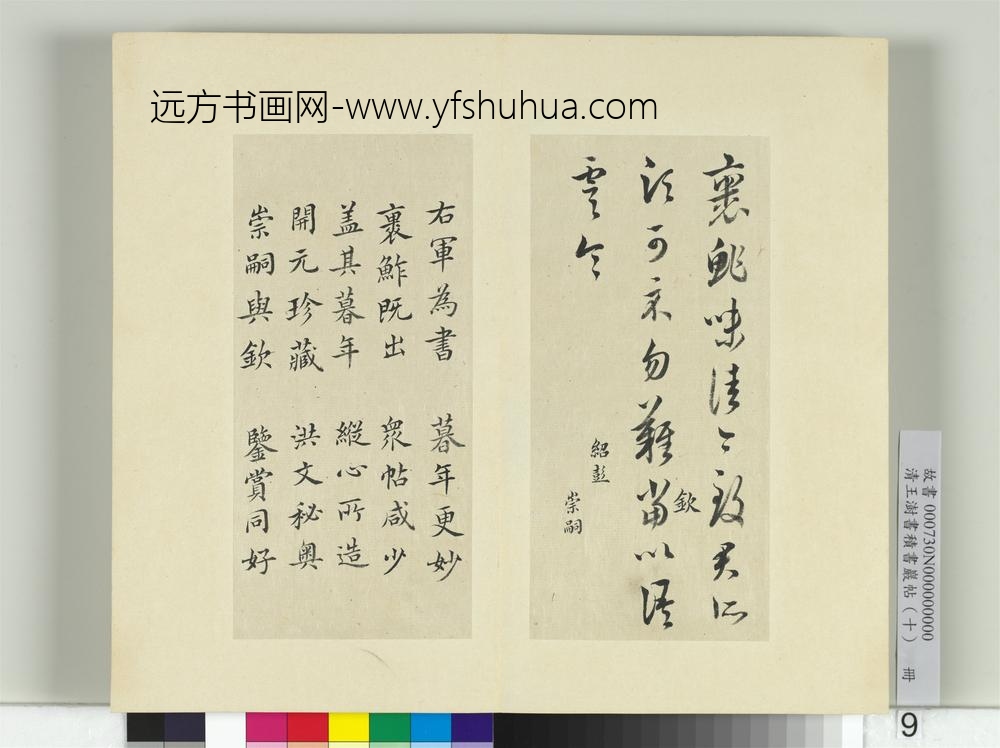 远方书画网-www.yfshuhua.com
裹鮓味佳今致君所
須可示勿難當以語
欽
虞令
紹彭
崇嗣
右軍為書 暮年更妙
裹鮓既出 衆帖咸少
盖其暮年 縱心所造
開元珍藏 洪文秘奥
崇嗣與欽 鑒賞同好
故書 000730N000000000
清王澍書積書巖帖（十） 冊
9